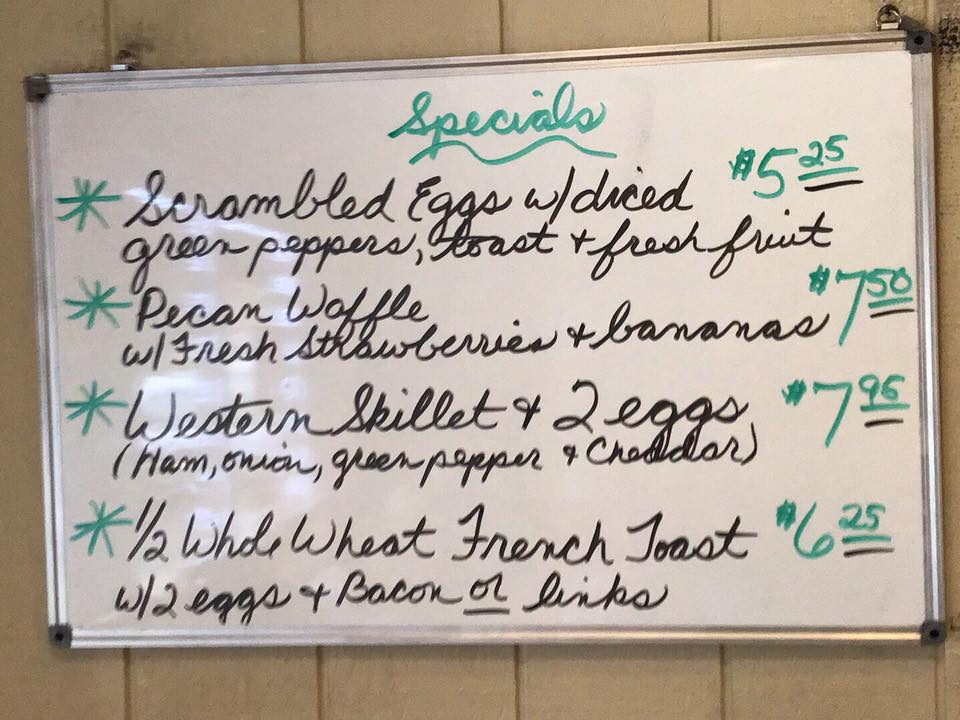 Specials
* Scrambled Eggs w/diced $5 25
green peppers, toast + fresh fruit
* Pecan Waffle $7 50
w/Fresh Strawberries + bananas
* Western Skillet + 2 eggs $7 95
(Ham, onion, green pepper + Cheddar)
* 1/2 Whole Wheat French Toast $6 25
w/2 eggs + Bacon or links